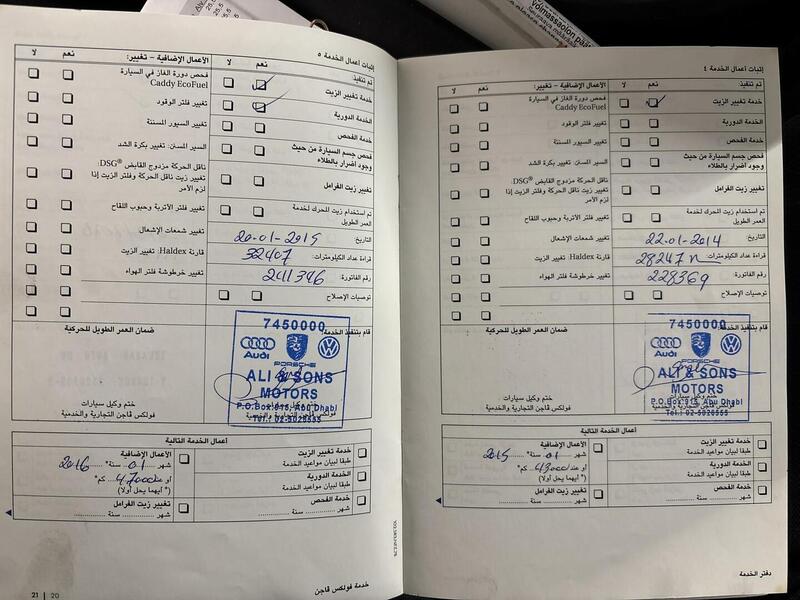 إثبات أعمال الخدمة ٤
تم تنفيذ:
نعم
لا
الأعمال الإضافية – تغيير:
نعم
لا
خدمة تغيير الزيت
الخدمة الدورية
خدمة الفحص
فحص جسم السيارة من حيث
وجود أضرار بالطلاء
تغيير زيت الفرامل
تم استخدام زيت للمحرك لخدمة
العمر الطويل
فحص دورة الغاز في السيارة
Caddy EcoFuel
تغيير فلتر الوقود
تغيير السيور المسننة
السير المسان: تغيير بكرة الشد
ناقل الحركة مزدوج القابض DSG®:
تغيير زيت ناقل الحركة وفلتر الزيت إذا
لزم الأمر
تغيير فلتر الأتربة وحبوب اللقاح
تغيير شمعات الإشعال
قارنة Haldex: تغيير الزيت
تغيير خرطوشة فلتر الهواء
التاريخ: 22-01-2014
قراءة عداد الكيلومترات: 28247
رقم الفاتورة: 228369
توصيات الإصلاح
قام بتنفيذ الخدمة:
ضمان العمر الطويل للحركية
7450000
Audi
PORSCHE
ALI & SONS
MOTORS
P.O.Box 915, Abu Dhabi
Tel.: 02-5028555
ختم وكيل سيارات
فولكس ڤاجن التجارية والخدمية
أعمال الخدمة التالية
خدمة تغيير الزيت
طبقا لبيان مواعيد الخدمة
الخدمة الدورية
طبقا لبيان مواعيد الخدمة
خدمة الفحص
شهر .......... سنة ..........
الأعمال الإضافية
شهر 01 سنة* 2015
أو عند 43000 كم*
(* أيهما يحل أولا)
تغيير زيت الفرامل
شهر .......... سنة ..........
دفتر الخدمة
إثبات أعمال الخدمة ٥
تم تنفيذ:
نعم
لا
الأعمال الإضافية – تغيير:
نعم
لا
خدمة تغيير الزيت
الخدمة الدورية
خدمة الفحص
فحص جسم السيارة من حيث
وجود أضرار بالطلاء
تغيير زيت الفرامل
تم استخدام زيت للمحرك لخدمة
العمر الطويل
فحص دورة الغاز في السيارة
Caddy EcoFuel
تغيير فلتر الوقود
تغيير السيور المسننة
السير المسان: تغيير بكرة الشد
ناقل الحركة مزدوج القابض DSG®:
تغيير زيت ناقل الحركة وفلتر الزيت إذا
لزم الأمر
تغيير فلتر الأتربة وحبوب اللقاح
تغيير شمعات الإشعال
قارنة Haldex: تغيير الزيت
تغيير خرطوشة فلتر الهواء
التاريخ: 20-01-2015
قراءة عداد الكيلومترات: 32407
رقم الفاتورة: 2011346
توصيات الإصلاح
قام بتنفيذ الخدمة:
ضمان العمر الطويل للحركية
7450000
Audi
PORSCHE
ALI & SONS
MOTORS
P.O.Box 915, Abu Dhabi
Tel.: 02-5028555
ختم وكيل سيارات
فولكس ڤاجن التجارية والخدمية
أعمال الخدمة التالية
خدمة تغيير الزيت
طبقا لبيان مواعيد الخدمة
الخدمة الدورية
طبقا لبيان مواعيد الخدمة
خدمة الفحص
شهر .......... سنة ..........
الأعمال الإضافية
شهر 01 سنة* 2016
أو عند 47000 كم*
(* أيهما يحل أولا)
تغيير زيت الفرامل
شهر .......... سنة ..........
خدمة فولكس ڤاجن
21 | 20